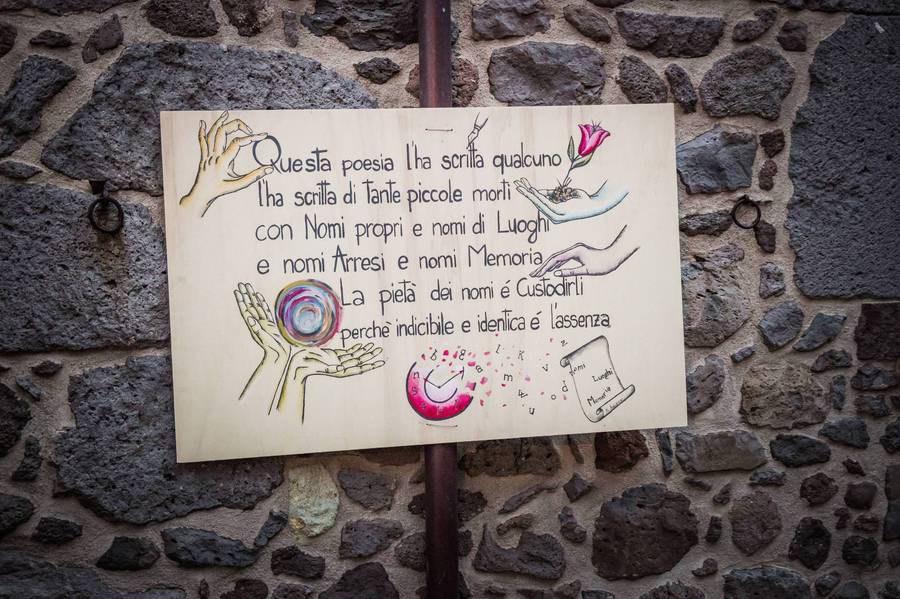 Questa poesia l'ha scritta qualcuno
l'ha scritta di Tante piccole morti
con Nomi propri e nomi di Luoghi
e nomi Arresi e nomi Memoria
La pietà dei nomi é Custodirli
perchè indicibile e identica é l'assenza
nomi
Luoghi
Memoria